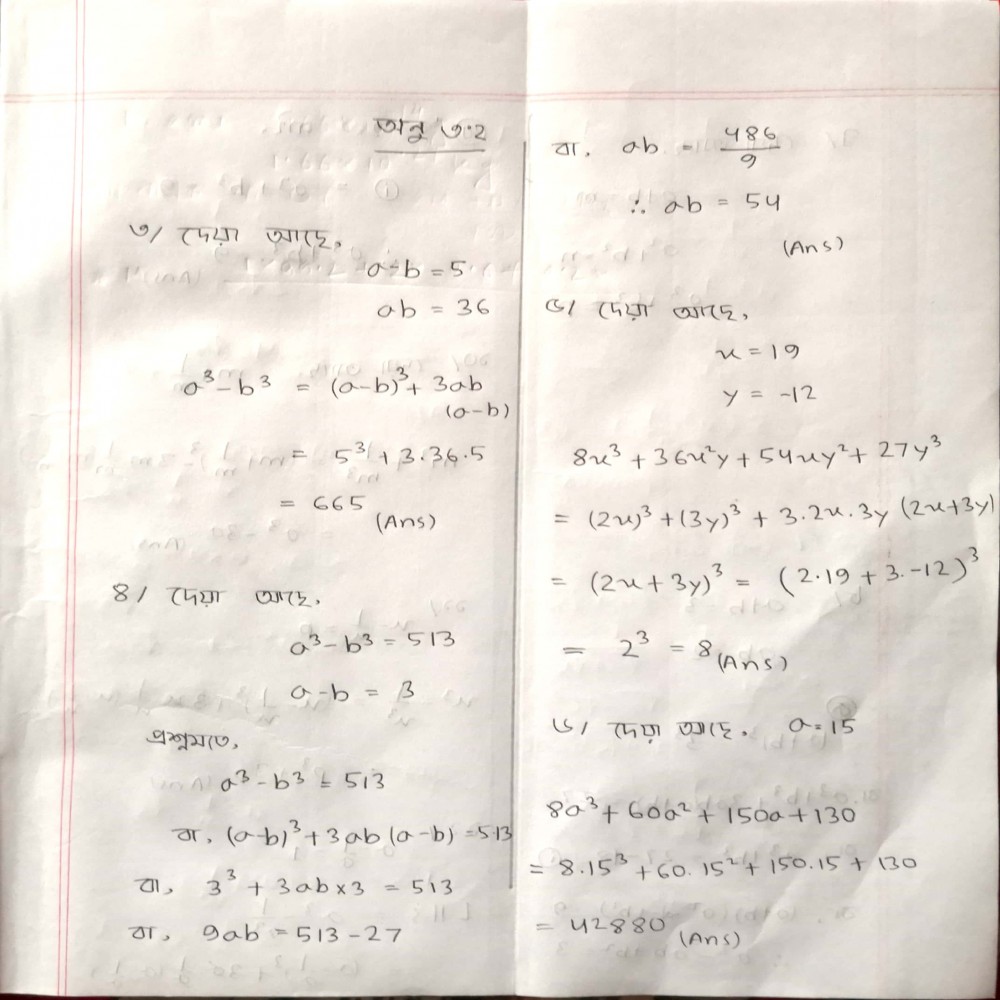 অনু ৩.২
৩/ দেয়া আছে,
a-b = 5
ab = 36
a³-b³ = (a-b)³+ 3ab
(a-b)
= 5³+3.36.5
= 665
(Ans)
৪/ দেয়া আছে,
a³-b³ = 513
a-b = 3
প্রশ্নমতে,
a³-b³ = 513
বা, (a-b)³+3ab(a-b) =513
বা, 3³ + 3ab×3 = 513
বা, 9ab = 513-27
বা, ab = 486/9
∴ ab = 54
(Ans)
৫/ দেয়া আছে,
x = 19
y = -12
8x³ + 36x²y + 54xy² + 27y³
= (2x)³ + (3y)³ + 3.2x.3y (2x+3y)
= (2x + 3y)³ = (2.19 + 3.-12)³
= 2³ = 8 (Ans)
৬/ দেয়া আছে, a=15
8a³ + 60a² + 150a + 130
= 8.15³ + 60.15² + 150.15 + 130
= 42880 (Ans)